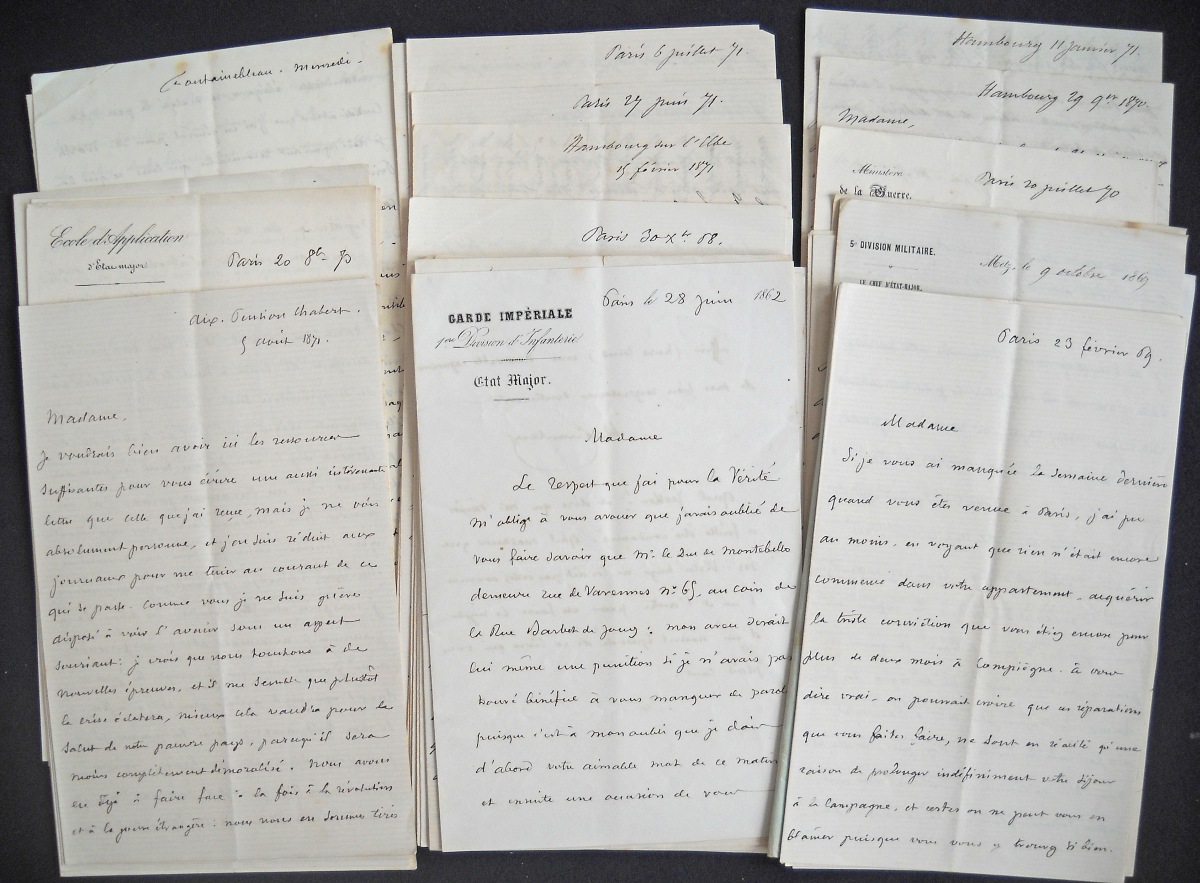 Fontainebleau. Mercredi.
Ecole d'Application
d'Etat major
Paris 20 8bre 70
Aix. Pension Chabert.
5 août 1871.
Madame,
Je voudrais bien avoir ici les ressources
suffisantes pour vous écrire une aussi intéressante
lettre que celle que j'ai reçue, mais je ne vois
absolument personne, et j'en suis réduit aux
journaux pour me tenir au courant de ce
qui se passe. Comme vous je ne suis guères
disposé à voir l'avenir sous un aspect
souriant: je crois que nous touchons à de
nouvelles épreuves, et il me semble que plutôt
la crise éclatera, mieux cela vaudra pour le
salut de notre pauvre pays, parcequ'il sera
moins complètement démoralisé. Nous avons
eu déjà à faire face à la fois à la révolution
et à la guerre étrangère: nous nous en sommes tirés
Paris 6 juillet 71.
Paris 27 juin 71.
Hambourg sur l'Elbe
15 février 1871
Paris 30 Xbre 68.
GARDE IMPÉRIALE
1ère Division d'Infanterie
Etat Major.
Paris le 28 juin 1862
Madame
Le respect que j'ai pour la Vérité
m'oblige à vous avouer que j'avais oublié de
vous faire savoir que Mr. le Duc de Montebello
demeure rue de Varennes no. 65, au coin de
la Rue Barbet de Jouy: mon aveu serait
lui même une punition si je n'avais pas
trouvé bénéfice à vous manquer de parole
puisque c'est à mon oubli que je dois
d'abord votre aimable mot de ce matin
et ensuite une occasion de vous
Hambourg 11 janvier 71.
Hambourg 29 9bre 1870.
Madame,
Ministère
de la Guerre.
Paris 20 juillet 70
5e DIVISION MILITAIRE.
Metz, le 9 octobre 1869
LE CHEF D'ÉTAT-MAJOR.
Paris 23 février 69.
Madame
Si je vous ai manquée la semaine dernière
quand vous êtes venue à Paris, j'ai pu
au moins, en voyant que rien n'était encore
commencé dans votre appartement, acquérir
la triste conviction que vous étiez encore pour
plus de deux mois à Compiègne. à vous
dire vrai, on pourrait croire que ces réparations
que vous faites faire, ne sont en réalité qu'une
raison de prolonger indéfiniment votre séjour
à la Campagne, et certes on ne peut vous en
blâmer puisque vous vous y trouvez si bien.